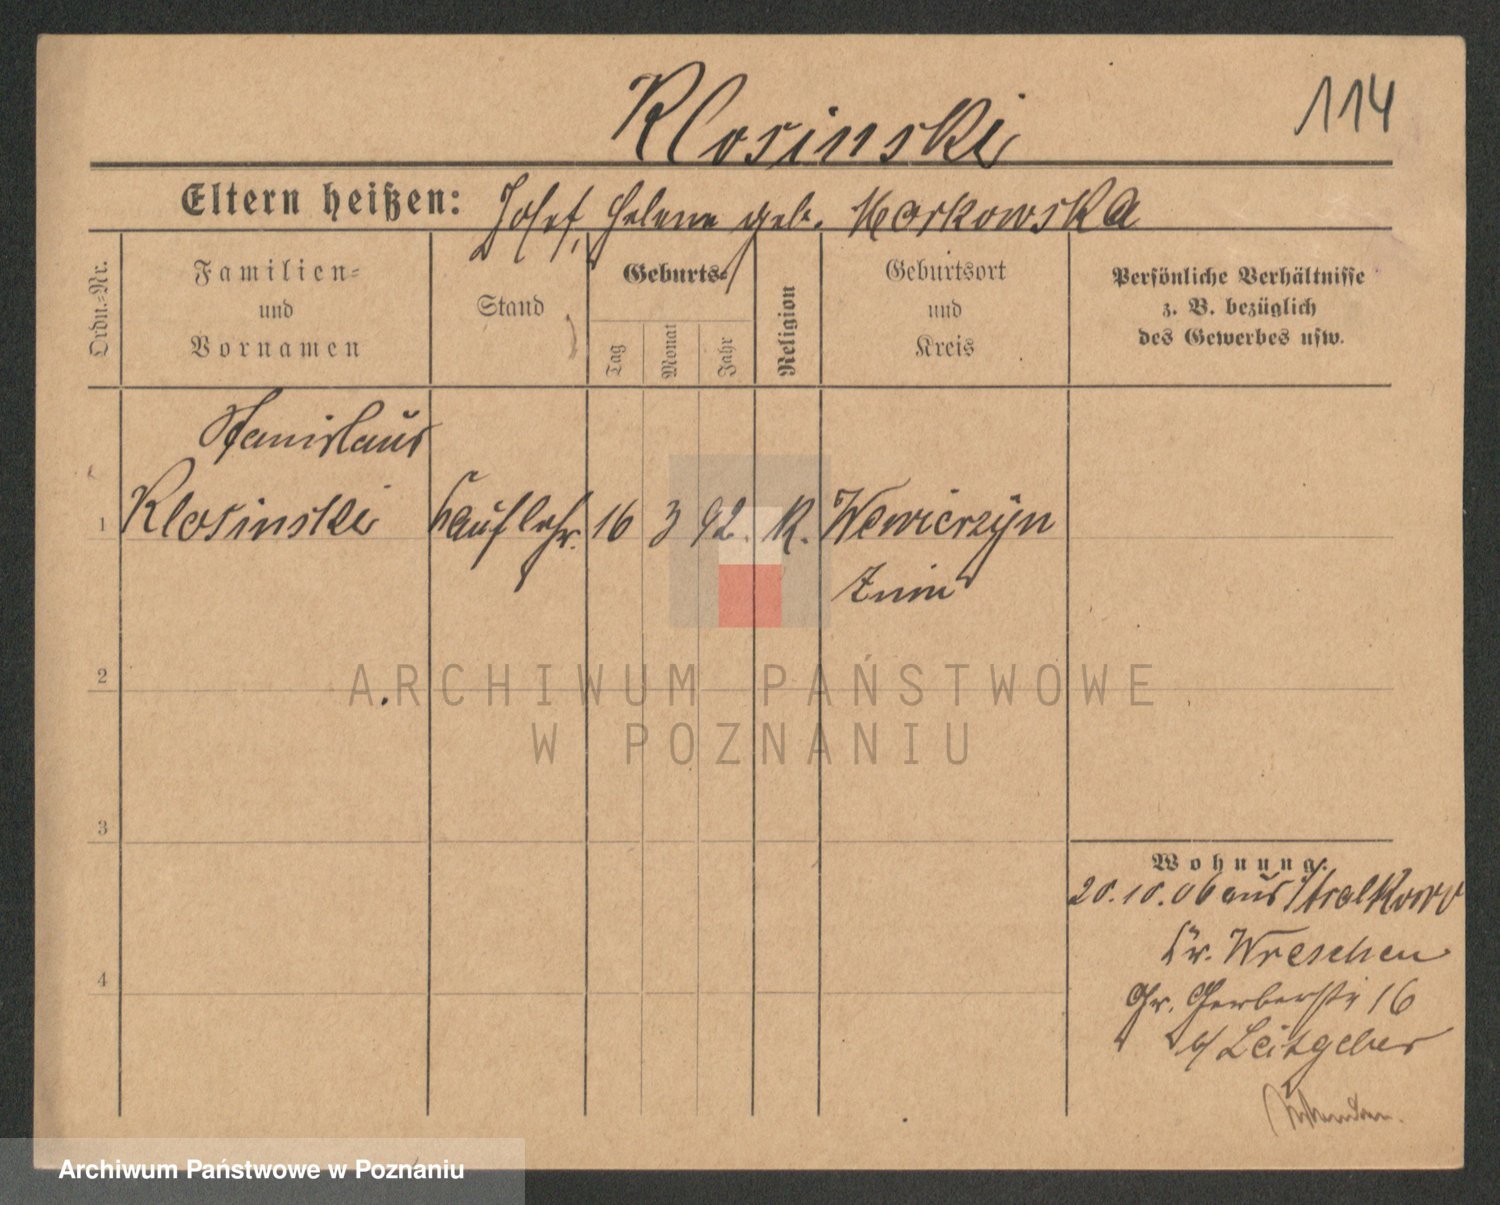 Klosinski
114
Eltern heißen: Josef, Helene geb. Markowska
Ordn.=Nr.
Familien=
und
Vornamen
Stand
Geburts=
Tag
Monat
Jahr
Religion
Geburtsort
und
Kreis
Persönliche Verhältnisse
z. B. bezüglich
des Gewerbes usw.
Stanislaus
1 Klosinski Kauflehr. 16 3 92. K. Wawierzyn
Znin
2
3
4
Wohnung:
20.10.06 aus Stralkowo
Kr. Wreschen
Gr. Gerberstr 16
b/ Leitgeber
ARCHIWUM PAŃSTWOWE
W POZNANIU
Archiwum Państwowe w Poznaniu